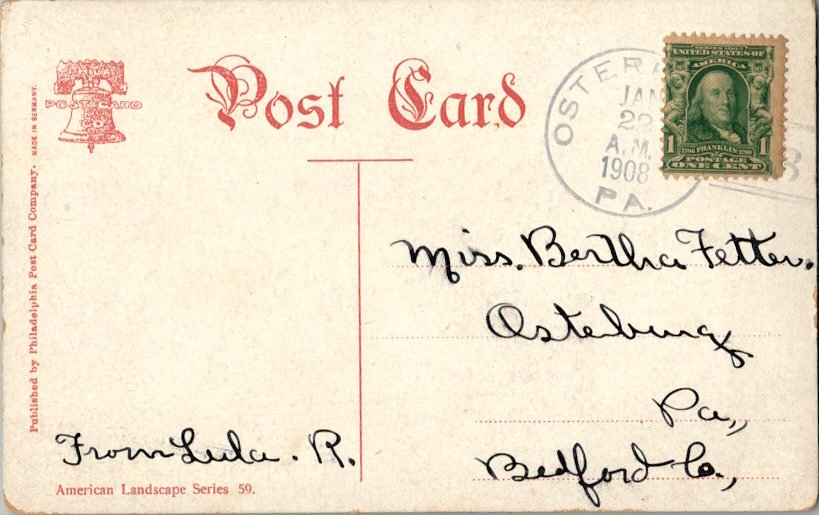 PHILA.
POST CARD
CO.
Post Card
Published by Philadelphia Post Card Company. MADE IN GERMANY.
OSTER
JAN
22
A.M.
1908
PA.
SERIES 1902
UNITED STATES OF
AMERICA
1 1
1706 FRANKLIN 1790
POSTAGE
ONE CENT
Miss. Bertha Fetter.
Osteburg
Pa,,
Bedford Co.,
From Lula. R.
American Landscape Series 59.